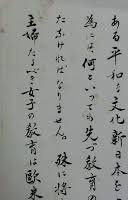 ある平和な文化新日本を
為には何といっても先づ教育の
たなければなりません。殊に将
主婦たるべき女子の教育は欧米